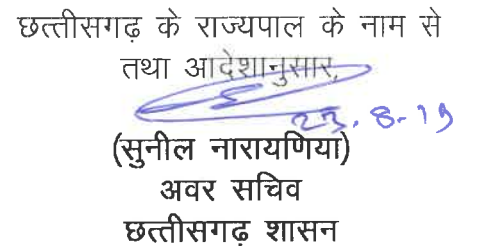 छत्तीसगढ़ के राज्यपाल के नाम से
तथा आदेशानुसार,
23.8-19
(सुनील नारायणिया)
अवर सचिव
छत्तीसगढ़ शासन